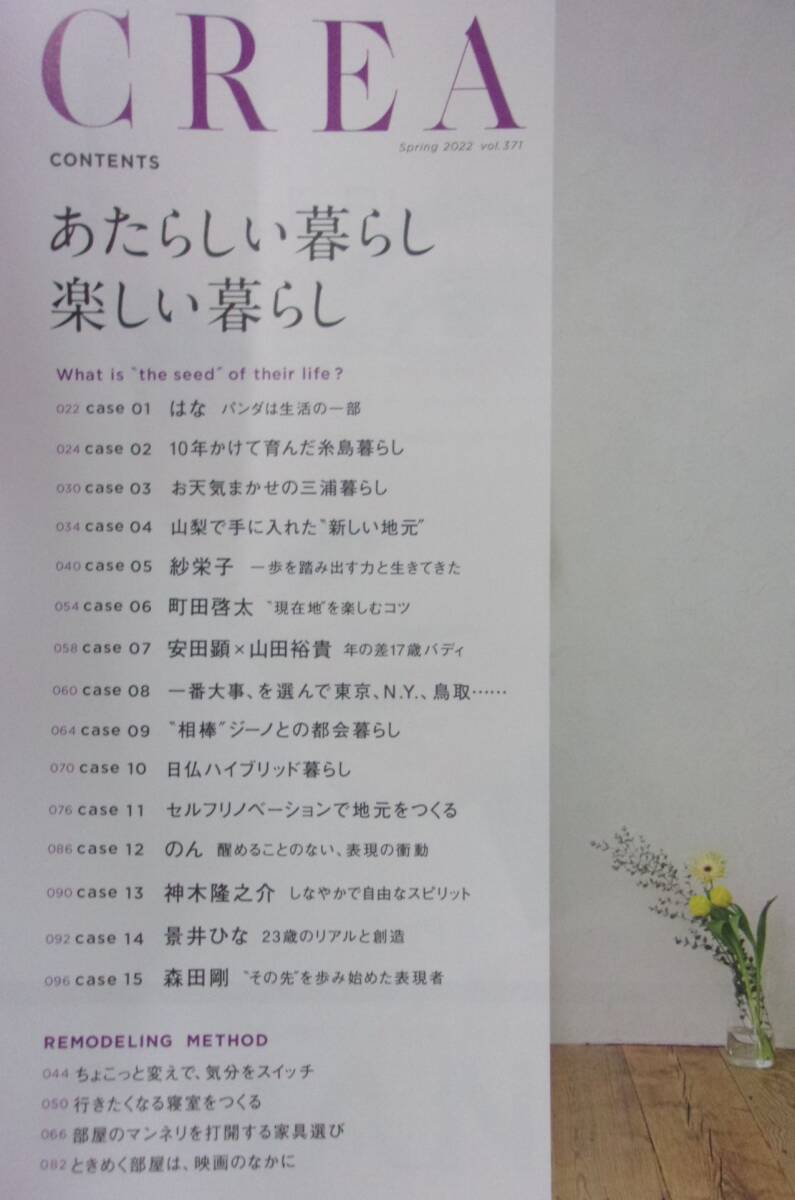 CREA
Spring 2022 vol.371
CONTENTS
あたらしい暮らし
楽しい暮らし
What is "the seed" of their life?
022 case 01 はな パンダは生活の一部
024 case 02 10年かけて育んだ糸島暮らし
030 case 03 お天気まかせの三浦暮らし
034 case 04 山梨で手に入れた"新しい地元"
040 case 05 紗栄子 一歩を踏み出す力と生きてきた
054 case 06 町田啓太 "現在地"を楽しむコツ
058 case 07 安田顕×山田裕貴 年の差17歳バディ
060 case 08 一番大事、を選んで東京、N.Y.、鳥取……
064 case 09 "相棒"ジーノとの都会暮らし
070 case 10 日仏ハイブリッド暮らし
076 case 11 セルフリノベーションで地元をつくる
086 case 12 のん 醒めることのない、表現の衝動
090 case 13 神木隆之介 しなやかで自由なスピリット
092 case 14 景井ひな 23歳のリアルと創造
096 case 15 森田剛 "その先"を歩み始めた表現者
REMODELING METHOD
044 ちょこっと変えで、気分をスイッチ
050 行きたくなる寝室をつくる
066 部屋のマンネリを打開する家具選び
082 ときめく部屋は、映画のなかに